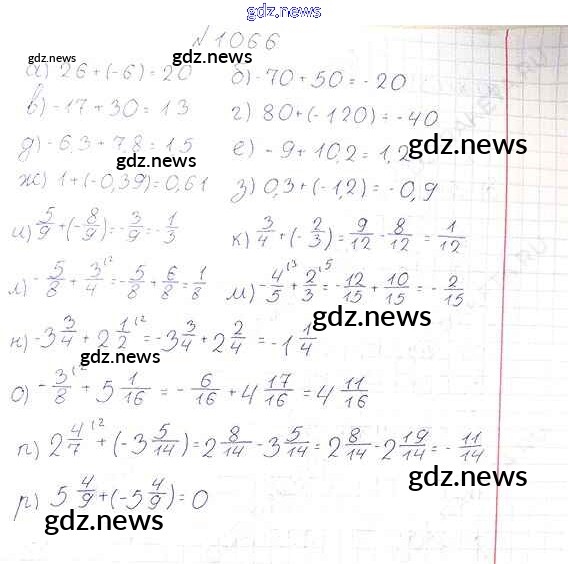 gdz.news
№ 1066
gdz.news gdz.news
а) 26 + (-6) = 20 б) -70 + 50 = -20
в) -17 + 30 = 13 г) 80 + (-120) = -40
д) -6,3 + 7,8 = 1,5 е) -9 + 10,2 = 1,2
gdz.news gdz.news
ж) 1 + (-0,39) = 0,61 з) 0,3 + (-1,2) = -0,9
и) 5/9 + (-8/9) = -3/9 = -1/3 к) 3/4 + (-2/3) = 9/12 - 8/12 = 1/12
л) -5/8 + 3/4^(2 = -5/8 + 6/8 = 1/8 м) -4/5^(3 + 2/3^(5 = -12/15 + 10/15 = -2/15
gdz.news
н) -3 3/4 + 2 1/2^(2 = -3 3/4 + 2 2/4 = -1 1/4
о) -3/8^(2 + 5 1/16 = -6/16 + 4 17/16 = 4 11/16
п) 2 4/7^(2 + (-3 5/14) = 2 8/14 - 3 5/14 = 2 8/14 - 2 19/14 = -11/14
gdz.news
р) 5 4/9 + (-5 4/9) = 0
gdz.news